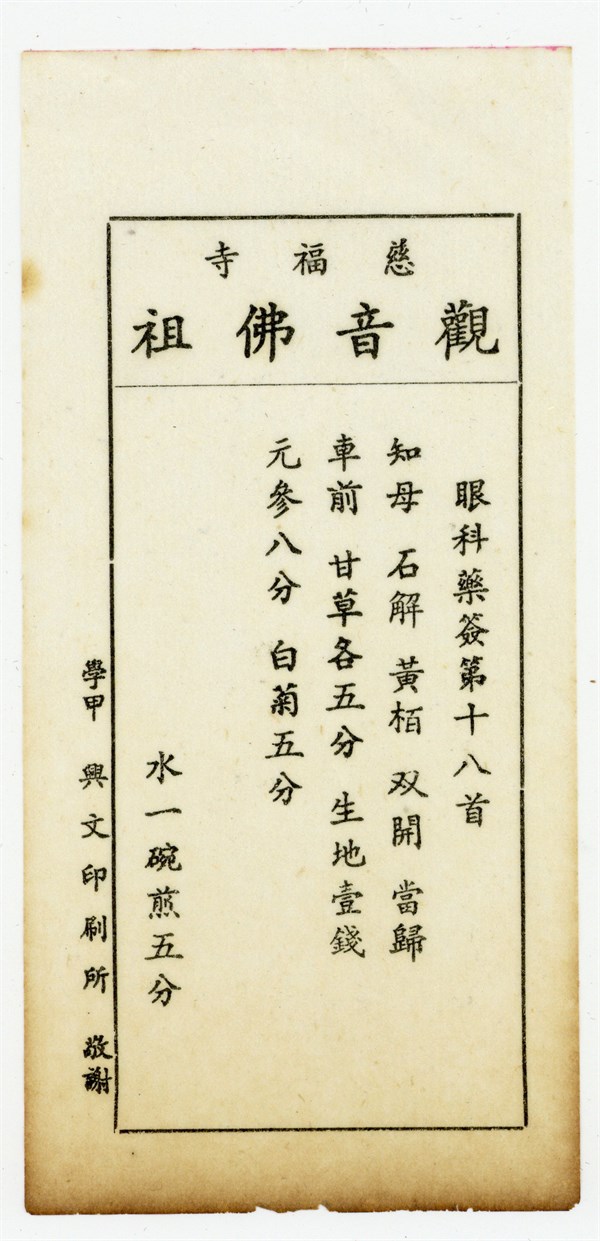 慈福寺
觀音佛祖
眼科藥簽第十八首
知母 石解 黃栢 双開 當歸
車前 甘草各五分 生地壹錢
元參八分 白菊五分
水一碗煎五分
學甲 興文印刷所 敬謝